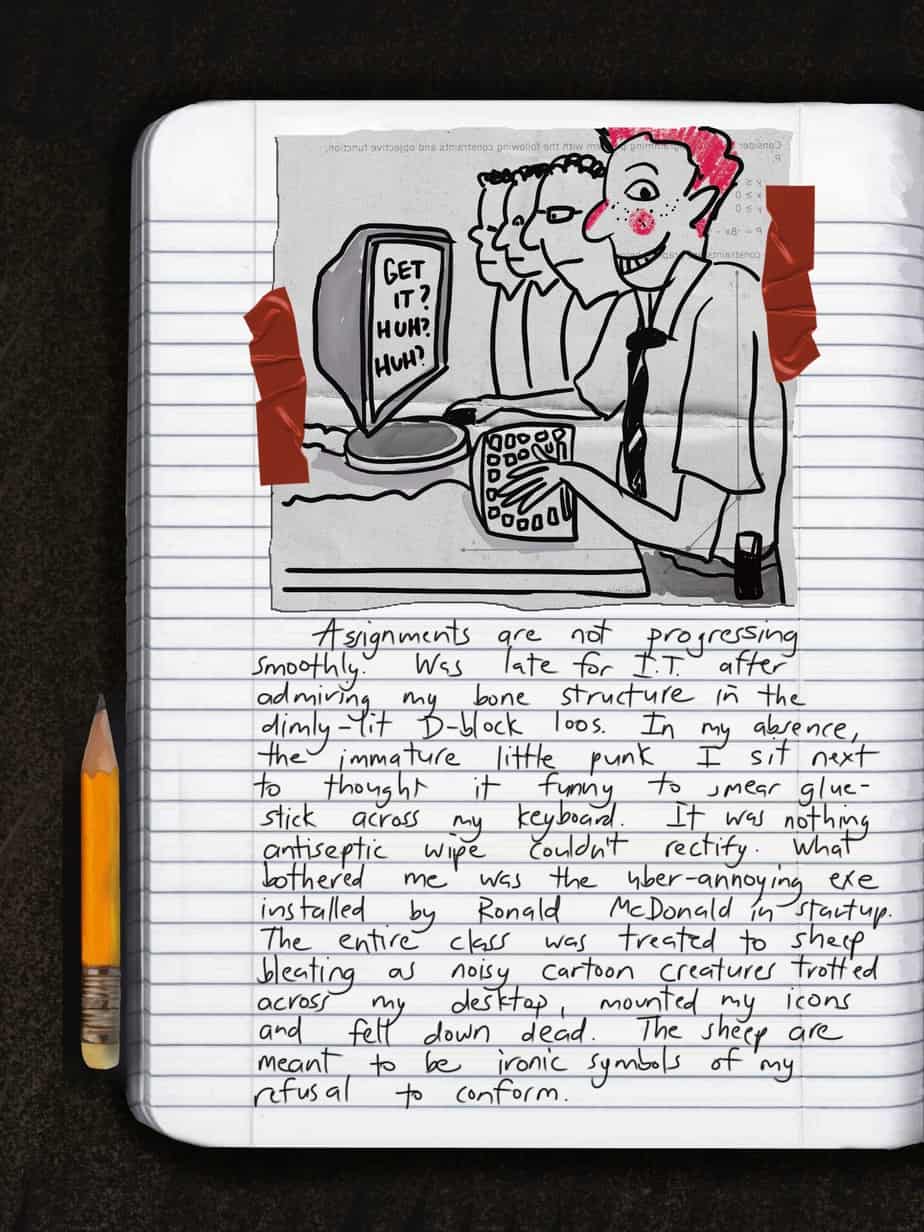 GET
IT?
HUH?
HUH?
Assignments are not progressing
smoothly. Was late for I.T. after
admiring my bone structure in the
dimly-lit D-block loos. In my absence,
the immature little punk I sit next
to thought it funny to smear glue-
stick across my keyboard. It was nothing
antiseptic wipe couldn't rectify. What
bothered me was the uber-annoying exe
installed by Ronald McDonald in startup.
The entire class was treated to sheep
bleating as noisy cartoon creatures trotted
across my desktop, mounted my icons
and fell down dead. The sheep are
meant to be ironic symbols of my
refusal to conform.